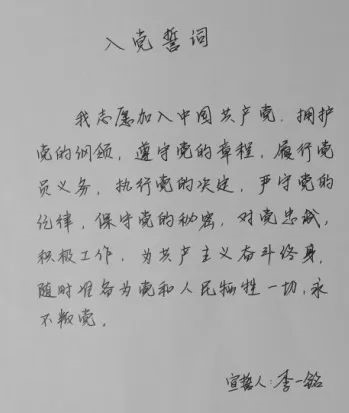 入党誓词
我志愿加入中国共产党，拥护
党的纲领，遵守党的章程，履行党
员义务，执行党的决定，严守党的
纪律，保守党的秘密，对党忠诚，
积极工作，为共产主义奋斗终身，
随时准备为党和人民牺牲一切，永
不叛党。
宣誓人：李一铭